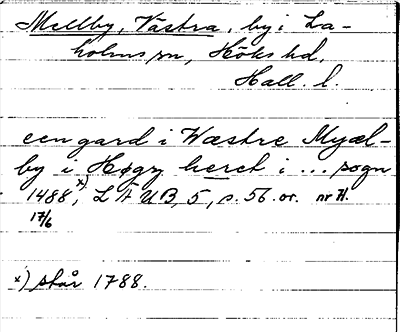 Mellby, Västra, by i La-
holms sn, Höks hd,
Hall. l.
een gard i Wæstre Myæl-
by i Høgx heret i ... sogn
1488 x), LÄUB, 5, s. 56. or. nr 71.
17/6
x) står 1788.